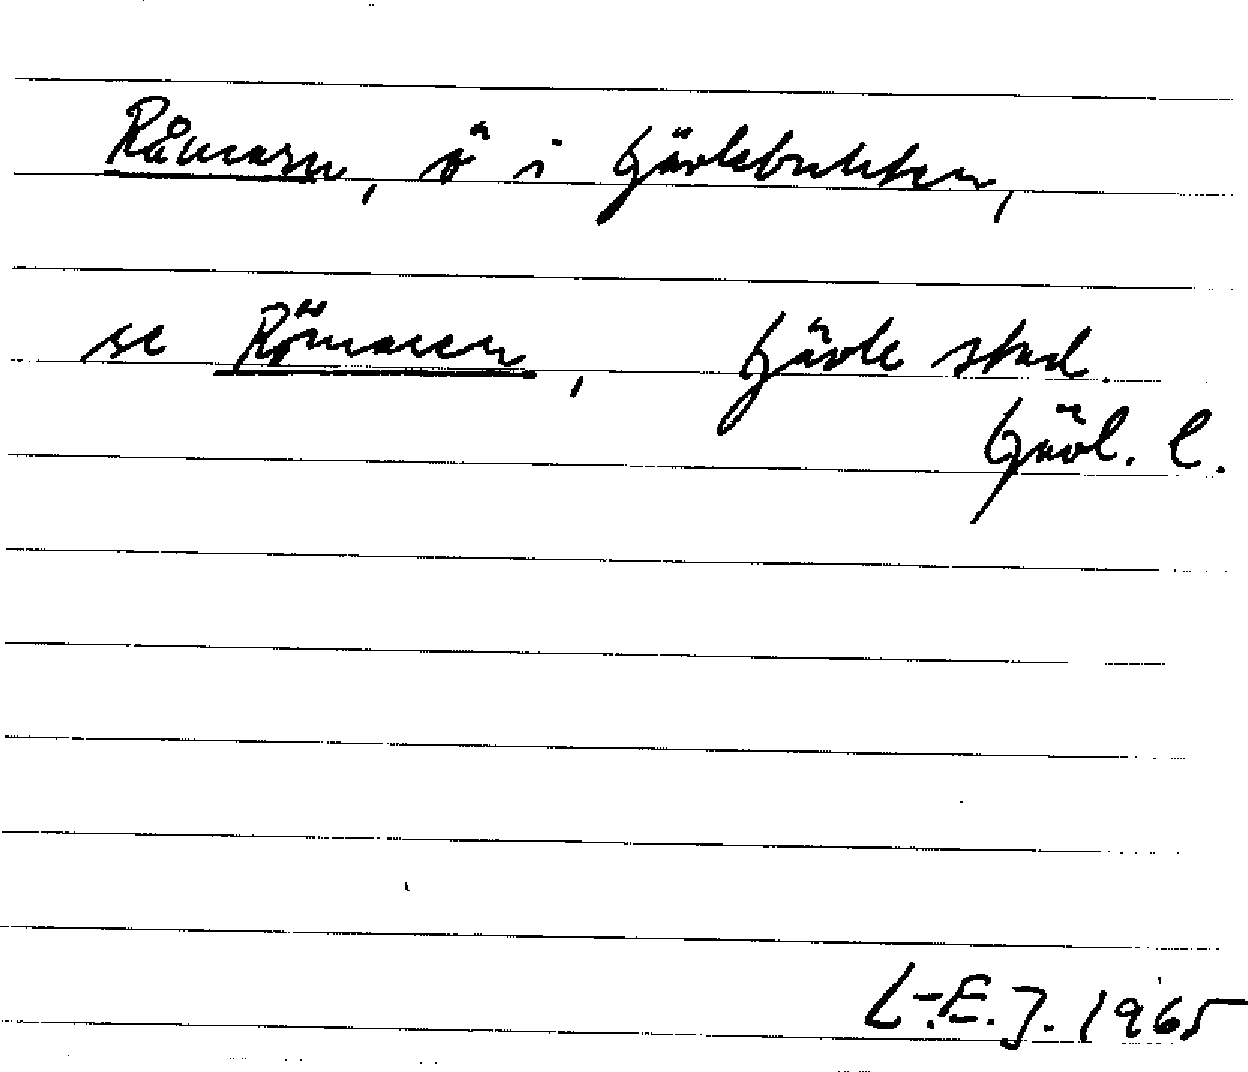 Råmarn, ö i Gävlebukten,
se Römaren, Gävle stad.
Gävl. l.
L-E.J. 1965